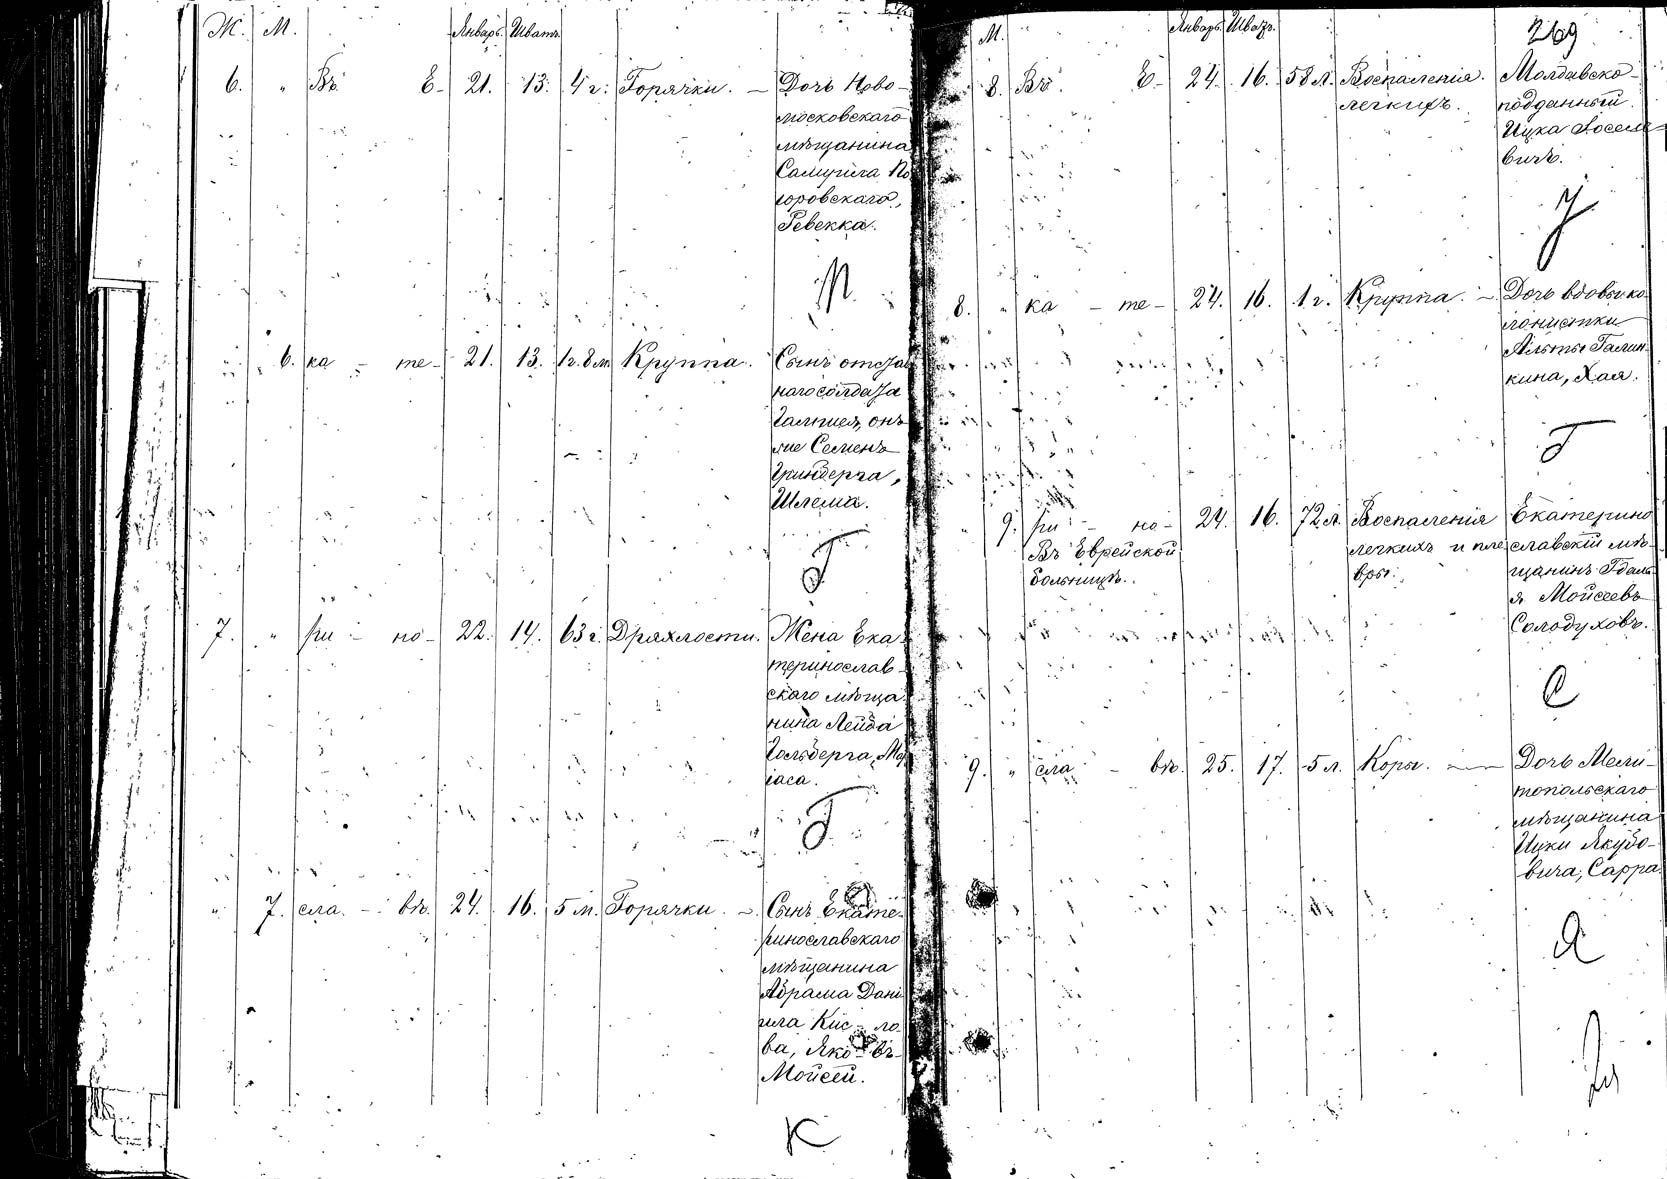 Ж. М. Январь. Шватъ.
6. " Въ Е- 21. 13. 4 г. Горячки. — Дочь Ново-
московскаго
мѣщанина
Самуила
Ревекка.
6. ка - те- 21. 13. 1 г. 8 м. Круппа. Сынъ отстав
наго солдата
онъ
же Семенъ
Гринберга,
Шлема.
Г
7. " ри - но- 22. 14. 63 г. Дряхлости. Жена Ека
теринослав-
скаго мѣща
нина Лейба
Гольдберга,
Г
7. сла - вѣ. 24. 16. 5 м. Горячки. — Сынъ Екате-
ринославскаго
мѣщанина
Абрама Дані
ила Кис - ло
ва, Яко - въ-
Мойсей.
К
М. Январь. Шватъ.
269
8. Въ Е- 24. 16. 58 л. Воспаленія Молдавско-
легкихъ. подданный
Ицка Іоселе-
вичъ.
8. " ка - те- 24. 16. 1 г. Круппа. — Дочь вдовы ко-
лонистки
Галин-
кина, Хая.
Г
9. ри - но- 24. 16. 72 л. Воспаленія Екатерино
Въ Еврейской легкихъ и пле славскій мѣ-
больницѣ. вры. щанинъ Гдаль-
я Мойсеевъ
Солодуховъ.
С
9. " сла - вѣ. 25. 17. 5 л. Кори. — Дочь Мели-
топольскаго
мѣщанина
Ицки Якубо-
вича, Сарра.
Я